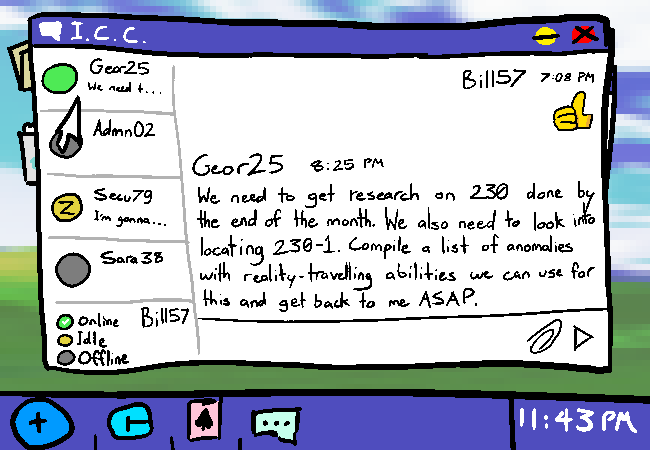 I.C.C.
Geor25
We need t...
Admn02
Secu79
I'm gonna...
Sara38
Online
Idle
Offline
Bill57
Bill57 7:08 PM
Geor25 8:25 PM
We need to get research on 230 done by
the end of the month. We also need to look into
locating 230-1. Compile a list of anomalies
with reality-travelling abilities we can use for
this and get back to me ASAP.
11:43 PM